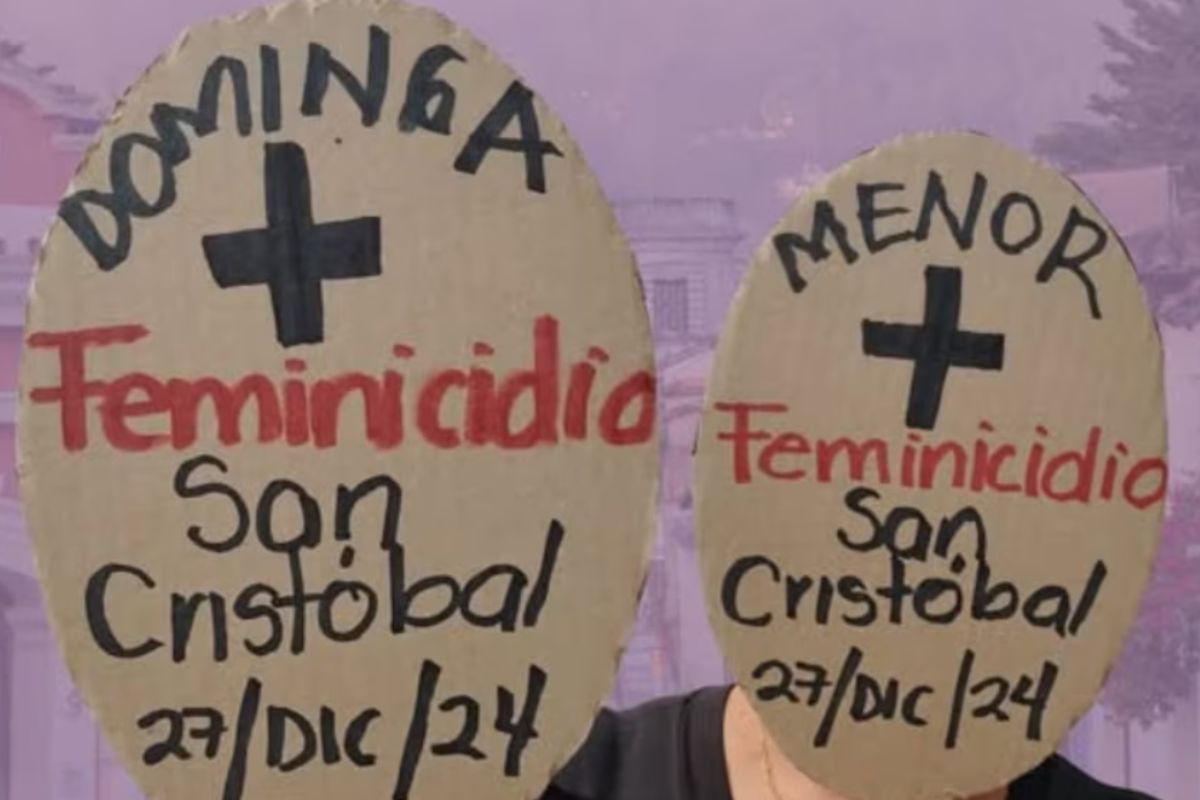 DOMINGA
Feminicidio
San
Cristóbal
27/DIC/24
MENOR
Feminicidio
San
Cristóbal
27/DIC/24